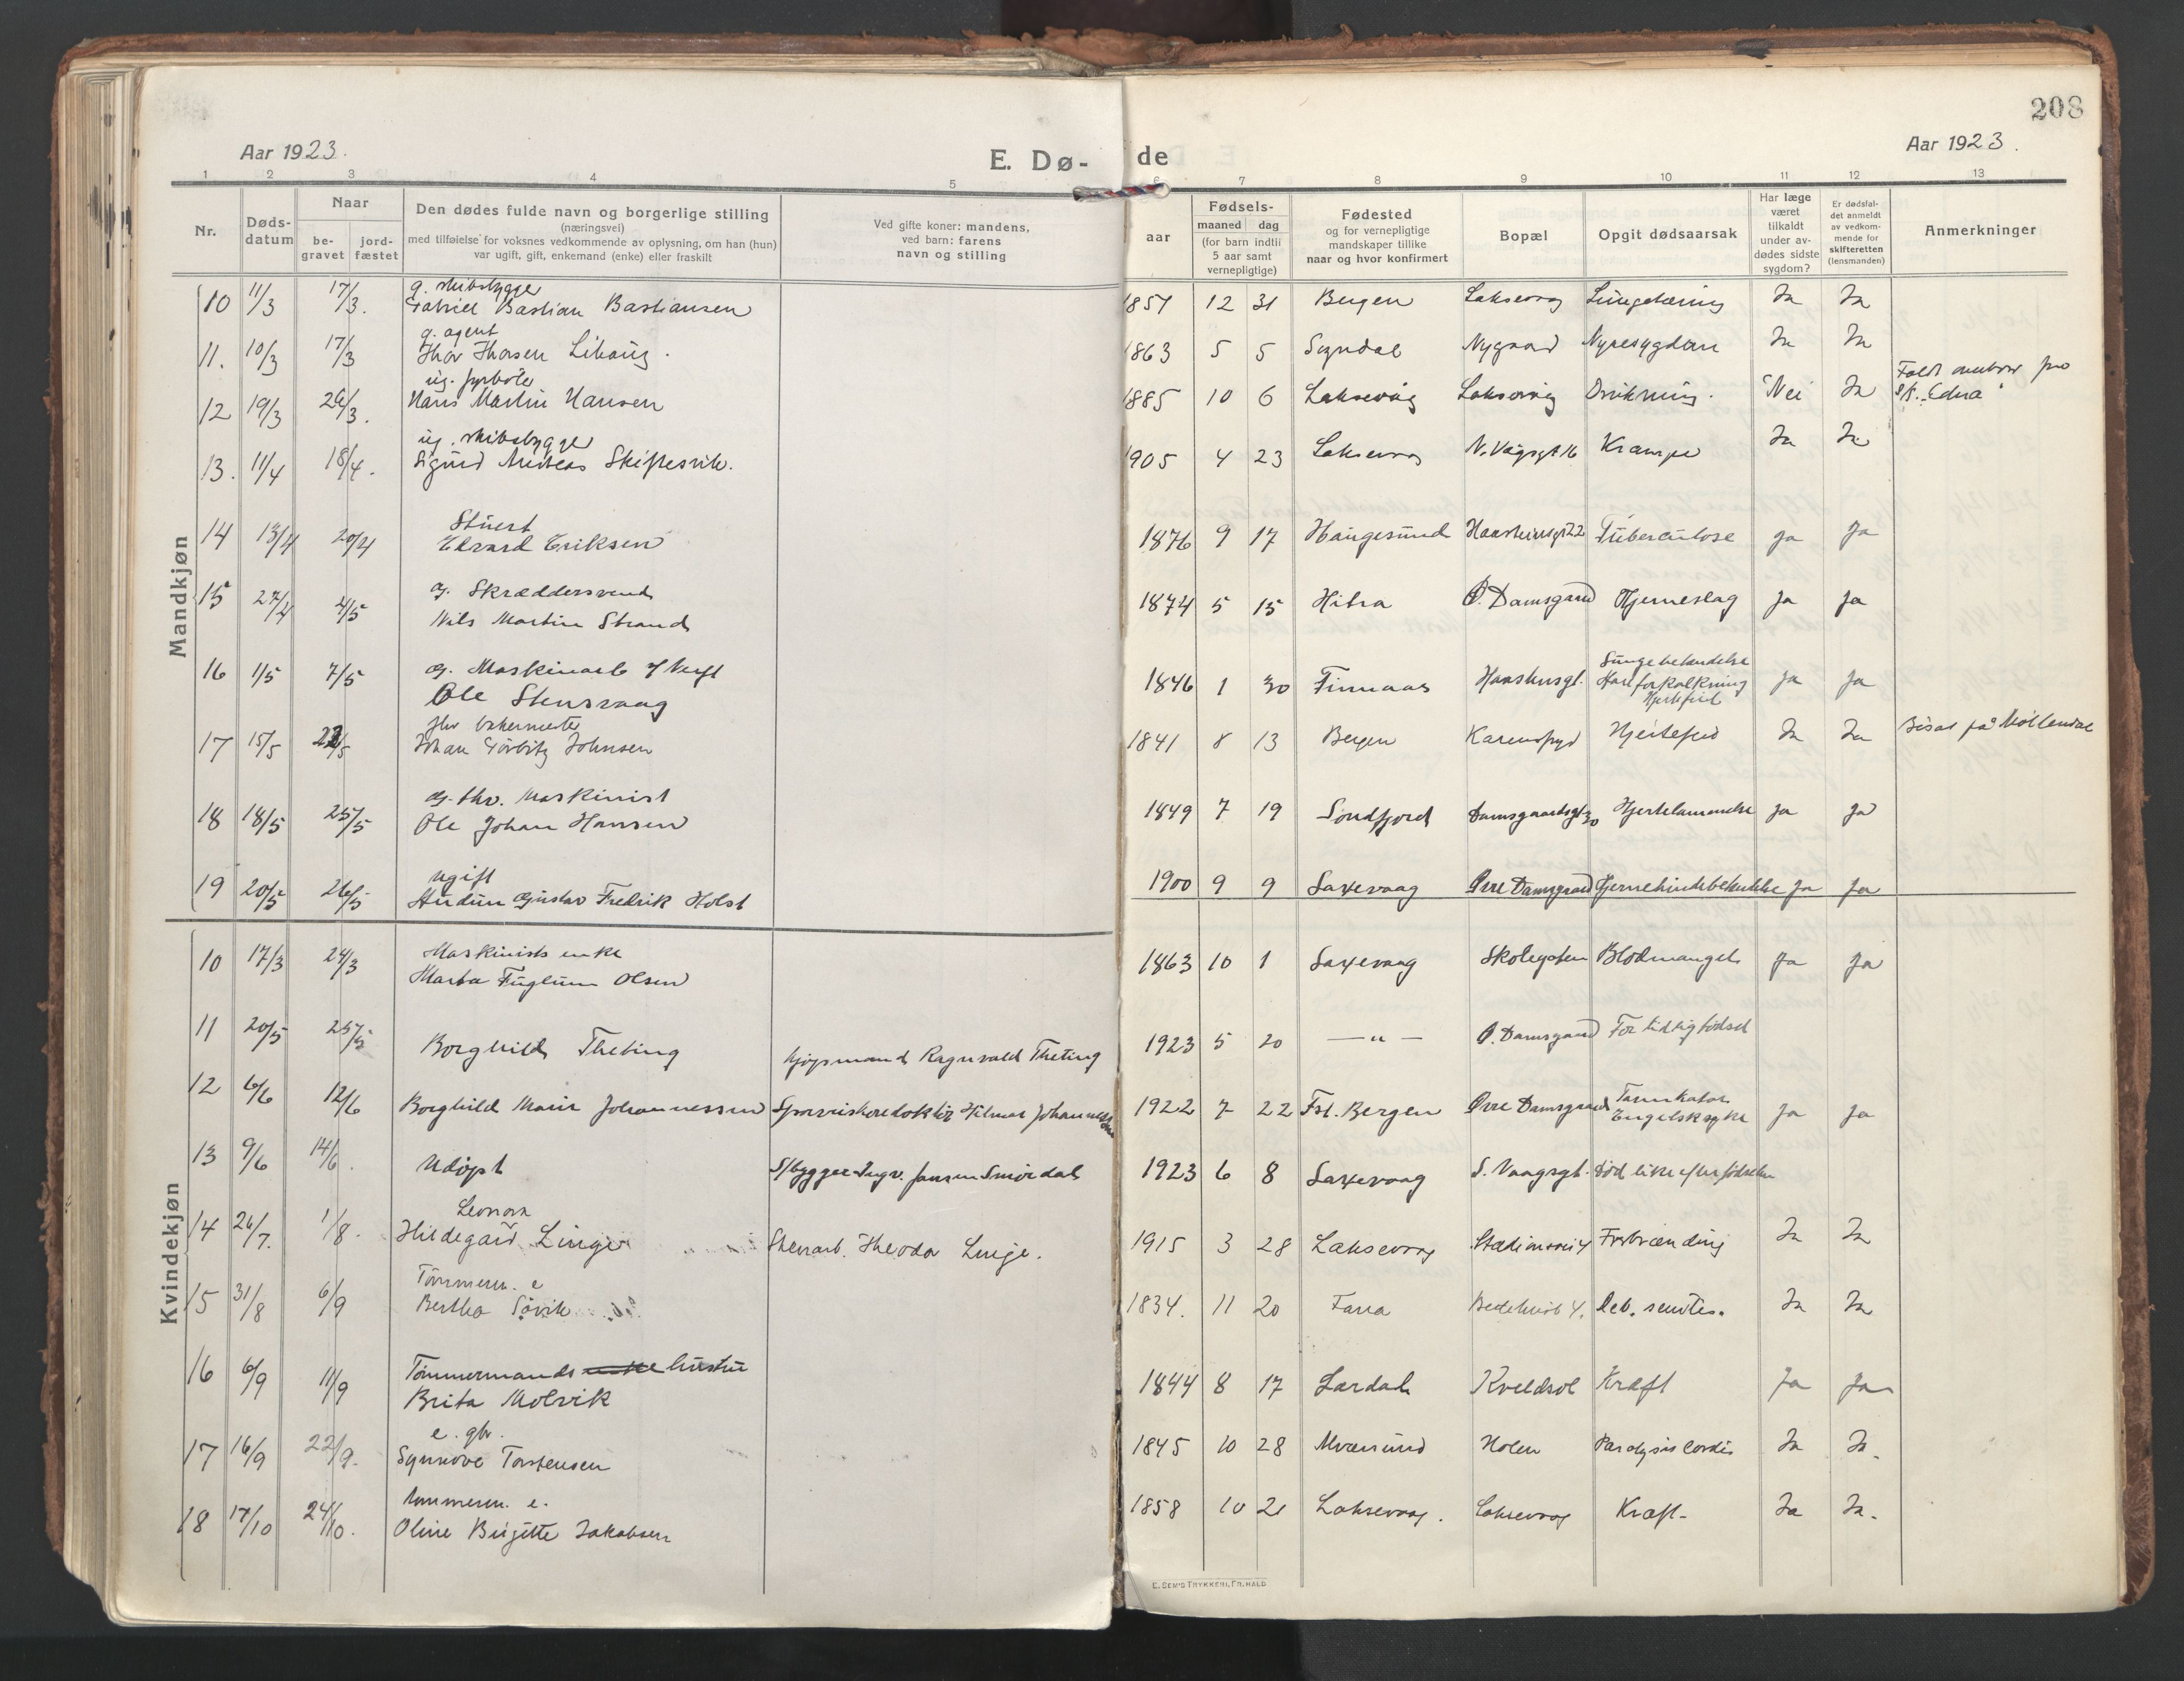 208
Aar 1923.
E. Dø-
de
Aar 1923.
1 2 3 4 5 6 7 8 9 10 11 12 13
Nr.
Døds-
datum
Naar
be-
gravet
jord-
fæstet
Den dødes fulde navn og borgerlige stilling
(næringsvei)
med tilføielse for voksnes vedkommende av oplysning, om han (hun)
var ugift, gift, enkemand (enke) eller fraskilt
Ved gifte koner: mandens,
ved barn: farens
navn og stilling
aar
Fødsels-
maaned dag
(for barn indtil
5 aar samt
vernepligtige)
Fødested
og for vernepligtige
mandskaper tillike
naar og hvor konfirmert
Bopæl
Opgit dødsaarsak
Har læge
været
tilkaldt
under av-
dødes sidste
sygdom?
Er dødsfal-
det anmeldt
av vedkom-
mende for
skifteretten
(lensmanden)
Anmerkninger
Mandkjøn
g. skibsbygge
10 11/3 17/3. Gabriel Bastian Bastiansen 1857 12 31 Bergen Laksevaag Ja Ja
g. agent
11. 10/3 17/3 Thor Thorsen 1863 5 5 Sogndal Nygaard Nyresygdom Ja Ja
ug. fyrbøter
12 19/3 26/3. Hans Martin Hansen 1885 10 6 Laksevåg Laksevåg Drukning. Nei Ja Faldt overbord fra
sk. "Edna"
ug. skibsbygge
13. 11/4 18/4. Sigurd Andreas Skiftesvik. 1905 4 23 Laksevaag N. Vågsgt 16 Krampe Ja Ja
Stuert
14 13/4 20/4 Edvard Eriksen 1876 9 17 Haugesund Tuberculose ja ja
g. Skræddersvend
15 27/4 4/5 Nils Martin Strand 1874 5 15 Hitra Ø. Damsgaard Hjerneslag ja ja
g. Maskinarb
16 1/5 7/5 Ole Stensvaag 1846 1 30 Finnaas
Lungebetændelse
Hjertefeil ja ja
fhv bakermester
17 15/5 22/5 Johan Johnsen 1841 8 13 Bergen Hjertefeil Ja Ja Bisat på Møllendal
g. fhv. Maskinist
18 18/5 25/5 Ole Johan Hansen 1849 7 19 Søndfjord Damsgaardsgt 30 Hjertelammelse ja ja
Ugift
19 20/5 26/5 Audun Gustav Fredrik Holst 1900 9 9 Laxevaag Øvre Damsgaard Hjernehindebetændelse ja ja
Kvindekjøn
Maskinists enke
10 17/3 24/3 Marta Fuglum Olsen 1863 10 1 Laxevaag Skolegaten Blodmangel ja ja
11 20/5 25/5 Borghild Theting Kjøpmand Ragnvald Theting 1923 5 20 — „ — Ø. Damsgaard For tidlig fødsel
12 6/6 12/6 Borghild Marie Johannessen Sporveiskonduktør Hilmar Johannessen 1922 7 22 Fst. Bergen Øvre Damsgaard
Engelsksyke ja ja
13 9/6 14/6. Udøpt S/bygger Ingv. Jansen Smørdal 1923 6 8 Laxevaag S. Vaagsgt. Død like efter fødselen
Leonora
14 26/7. 1/8. Hildegard Linge Stenarb. Theodor Linge. 1915 3 28 Laksevaag Stadionvei 4 Forbrænding Ja Ja
Tømmerm. e
15 31/8 6/9 Bertha Søvik 1834. 11 20 Fana Bedehusb 4. Deb. senilis. Ja Ja
Tømmermands enke hustru
16 6/9 11/9 Brita Molvik 1844 8 17 Lærdal Kveldsol Kræft Ja Ja
e. gbr.
17 16/9 22/9. Synnøve Torstensen 1845 10 28 Alversund Holen Paralysis Cordis Ja Ja.
tømmerm. e.
18 17/10 24/10. Oline Birgitte Jakobsen 1858 10 21 Laksevaag. Laksevaag Kræft- Ja Ja.
E. SEM'S TRYKKERI, FR.HALD